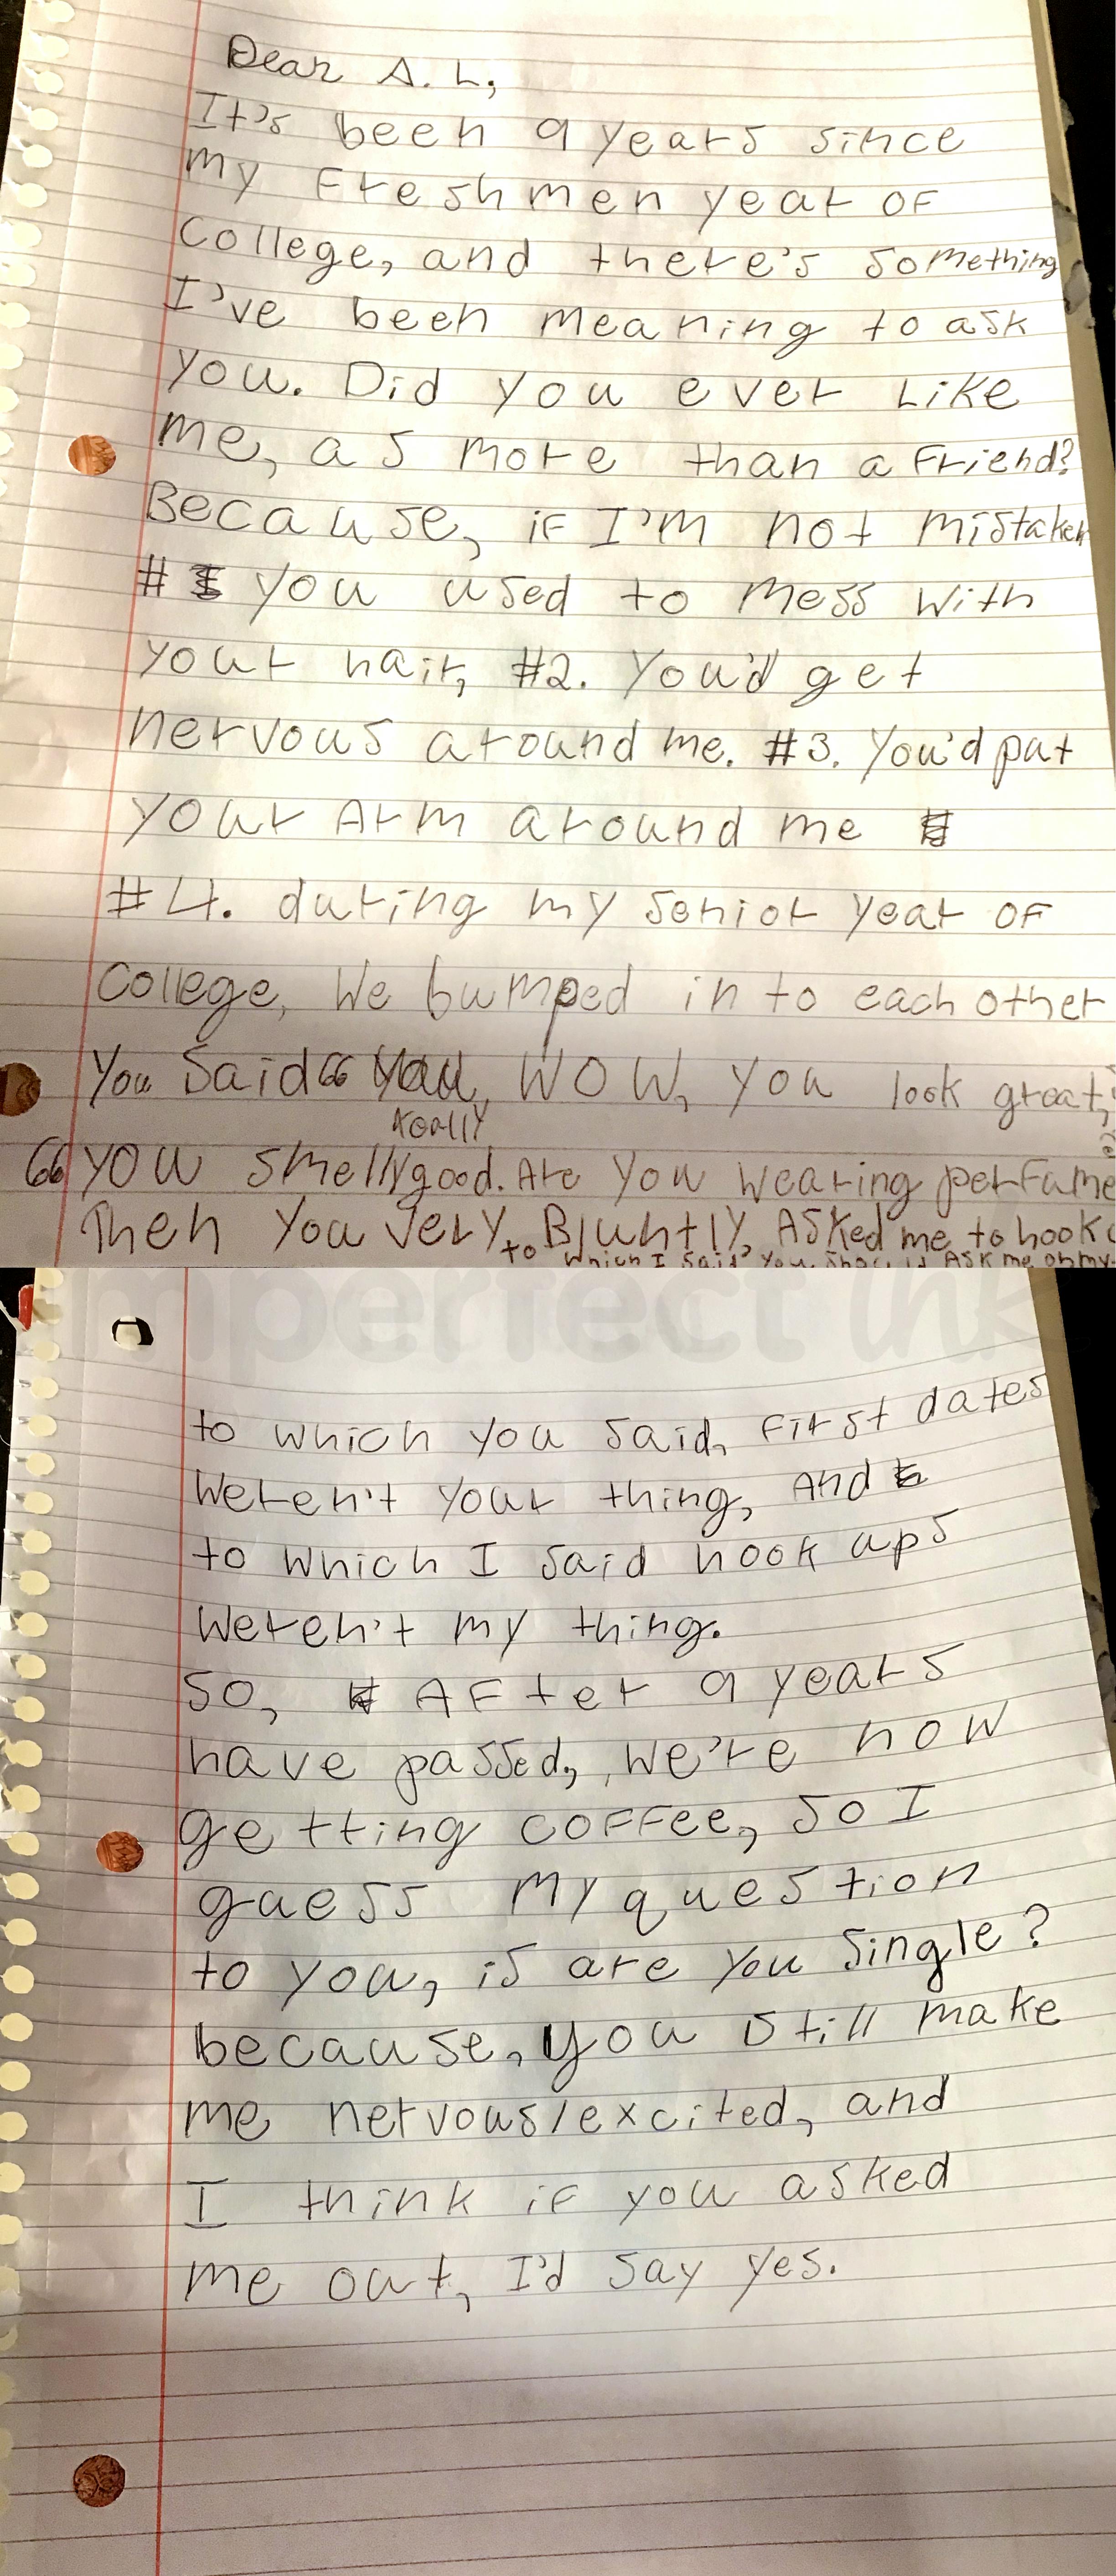 Dear A. L,
It's been 9 years since
my Freshmen year of
College, and there's something
I've been meaning to ask
you. Did you ever Like
me, as more than a Friend?
Because, if I'm not mistaken
# you used to mess with
your hair, #2. You'd get
nervous around me. #3. You'd put
your Arm around me
#4. during my senior year of
College, We bumped in to each other
you said “ you, WOW, you look great,
really
“you smell good. Are you wearing perfume
Then you very, Bluntly, Asked me to hook
to which I said, you should ASK me on my
imperfect ink
to which you said, first dates
Weren't your thing, And
to which I said hook ups
Weren't my thing.
So, After 9 years
have passed, we're now
getting coffee, so I
guess my question
to you, is are you single?
because, you still make
me nervous/excited, and
I think if you asked
me out, I'd say yes.